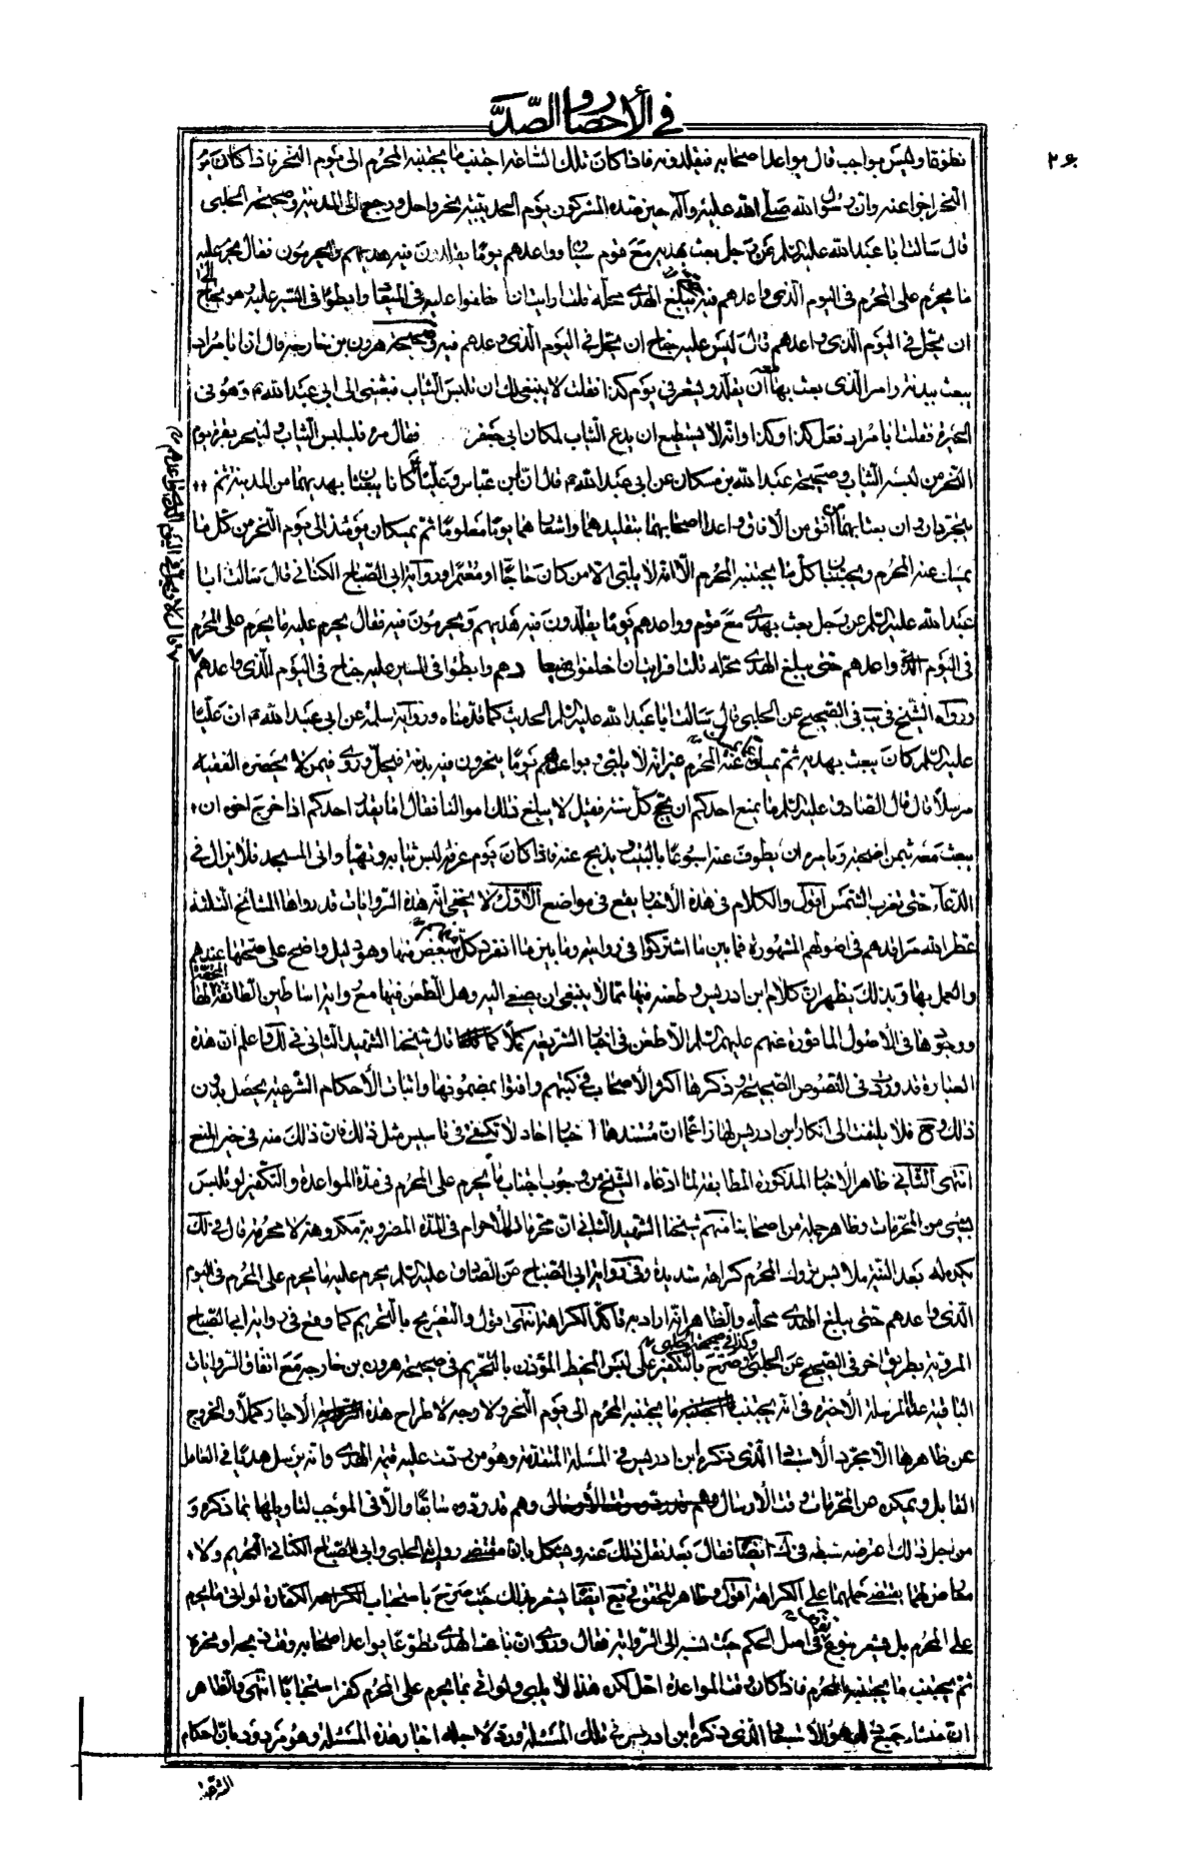 في الأحصار والصدّ
٢٠٤
تطوّعا وليس بواجب قال يواعد اصحابه فيقلدونه فاذا كان تلك الساعة اجتنب ما يجتنبه المحرم الى يوم النحر فاذا كان يوم
النحر اجزأ عنه وان رسول الله صلى الله عليه وآله حين صده المشركون يوم الحديبية نحر واحل ورجع الى المدينة وصحيحة الحلبي
قال سالت ابا عبد الله عليه السلم عن رجل بعث بهديه مع قوم وواعدهم يوما يقلدون فيه هديهم ويحرمون فقال يحرم عليه
ما يحرم على المحرم في اليوم الذي واعدهم فيه حتى يبلغ الهدي محله قلت ارايت ان اختلفوا عليه في الميعاد وابطؤا في السير عليه وهو يحتاج
ان يحل في اليوم الذي واعدهم قال ليس عليه جناح ان يحل في اليوم الذي واعدهم فيه وصحيحة هرون بن خارجة قال ان ابا مراد
بعث ببدنة وامر الذي بعث بها معه ان يقلد ويشعر في يوم كذا فقلت لا ينبغي لك ان تلبس الثياب فبعثني الى ابي عبد الله ع وهو في
الحيرة فقلت ان ابا مراد فعل كذا وكذا وانه لا يستطيع ان يدع الثياب لمكان ابي جعفر فقال مره فليلبس الثياب ولينحر بقرة يوم
النحر من لبسه الثياب وصحيحة عبد الله بن مسكان عن ابي عبد الله ع قال ان ابن عباس وعليا ع كانا يبعثان بهديهما من المدينة ثم
يتجردان وان بعثا بهما من افق من الافاق واعدا اصحابهما بتقليدهما واشعارهما يوما معلوما ثم يمسكان يومئذ الى يوم النحر من كل ما
يمسك عنه المحرم ويجتنبان كل ما يجتنبه المحرم الا انه لا يلبي الا من كان حاجا او معتمرا ورواية ابي الصباح الكناني قال سالت ابا
عبد الله عليه السلم عن رجل بعث بهدي مع قوم وواعدهم يوما يقلدون فيه هديهم ويحرمون فيه فقال يحرم عليه ما يحرم على المحرم
في اليوم الذي واعدهم حتى يبلغ الهدي محله قلت افرايت ان اخلفوا في ميعادهم وابطؤا في السير عليه جناح في اليوم الذي واعدهم
ورواه الشيخ في يب في الصحيح عن الحلبي قال سالت ابا عبد الله عليه السلم الحديث كما قدمناه ورواية سلمة عن ابي عبد الله ع ان عليا
عليه السلم كان يبعث بهديه ثم يمسك عما يمسك عنه المحرم غير انه لا يلبي ويواعدهم يوما ينحرون فيه بدنة فيحل وروى فيمن لا يحضره الفقيه
مرسلا قال قال الصادق عليه السلم ما يمنع احدكم ان يحج كل سنة فقيل لا يبلغ ذلك اموالنا فقال اما يقدر احدكم اذا خرج اخوه ان
يبعث معه بثمن اضحية ويامره ان يطوف عنه اسبوعا بالبيت ويذبح عنه فاذا كان يوم عرفة لبس ثيابه وتهيا واتى المسجد فلا يزال في
الدعاء حتى تغرب الشمس اقول والكلام في هذه الأخبار يقع في مواضع الأول لا يخفى ان هذه الروايات قد رواها المشائخ الثلثة
عطر الله مراقدهم في اصولهم المشهورة فما بين ما اشتركوا في روايته وما بين ما انفرد كل ببعض منها وهو دليل واضح على صحتها عندهم
والعمل بها وبذلك يظهر ان كلام ابن ادريس وطعنه فيها مما لا ينبغي ان يصغى اليه وهل الطعن فيها مع رواية اساطين الطائفة المحقة لها
ووجودها في الأصول المأثورة عنهم عليهم السلم الا طعن في اخبار الشريعة كملا كما قال شيخنا الشهيد الثاني في لك واعلم ان هذه
العبارة قد وردت في النصوص الصحيحة وذكرها اكثر الأصحاب في كتبهم وافتوا بمضمونها واثبات الأحكام الشرعية يحصل بدون
ذلك وح فلا يلتفت الى انكار ابن ادريس لها زاعما ان مستندها اخبار احاد لا تكفي في تاسيس مثل ذلك فان ذلك منه في خير المنع
انتهى الثاني ظاهر الاخبار المذكورة المطابقة لما ادعاه الشيخ من وجوب اجتناب ما يحرم على المحرم في مدة المواعدة والتكفير لو تلبس
بشيء من المحرمات وظاهر جملة من اصحابنا منهم شيخنا الشهيد الثاني ان محرمات الاحرام في المدة المضروبة مكروهة لا محرمة قال في لك
يكره له بعد النية ملابس تروك المحرم كراهة شديدة وفي رواية ابي الصباح عن الصادق عليه السلم يحرم عليه ما يحرم على المحرم في اليوم
الذي واعدهم حتى يبلغ الهدي محله والظاهر انه اراد به تاكد الكراهة انتهى اقول والتصريح بالتحريم كما وقع في رواية ابي الصباح
المروية بطريق اخر في الصحيح عن الحلبي وكذا في صحيحة الحلبي وصرح بالتكفير على لبس المخيط المؤذن بالتحريم في صحيحة هرون بن خارجة مع اتفاق الروايات
الباقية عدا المرسلة الأخيرة في انه يجتنب ما يجتنبه المحرم الى يوم النحر ولا وجه لاطراح هذه الأخبار كملا والخروج
عن ظاهرها الا مجرد الاستبعاد الذي ذكره ابن ادريس في المسئلة المتقدمة وهو من ردت عليه قيمة الهدي وانه يرسل هديا في العامل
القابل ويمسك عن المحرمات وقت الأرسال وهم قد ردوه سابقا والا في الموجب لتاويلها بما ذكره و
من اجل ذلك اعترضه سبطه في ك ايضا فقال بعد نقل ذلك عنه ويشكل بان مقتضى روايتي الحلبي وابي الصباح الكناني التحريم ولا
معارض لهما يقتضي حملهما على الكراهة اقول وظاهر المحقق في يع ايضا يشعر بذلك حيث صرح باستحباب الكفارة لو اتى بما يحرم
على المحرم بل يشعر بنوع توقف في اصل الحكم حيث نسبه الى الرواية فقال وروي ان باعث الهدي تطوعا يواعد اصحابه وقت ذبحه او نحره
ثم يجتنب ما يجتنبه المحرم فاذا كان وقت المواعدة احل لكن هذا لا يلبي ولو اتى بما يحرم على المحرم كفر استحبابا انتهى والظاهر
ان منشاء جميع ذلك هو الاستبعاد الذي ذكره ابن ادريس في تلك المسئلة ورد لاجله اخبار هذه المسئلة وهو مردود بان احكام
الشرعية